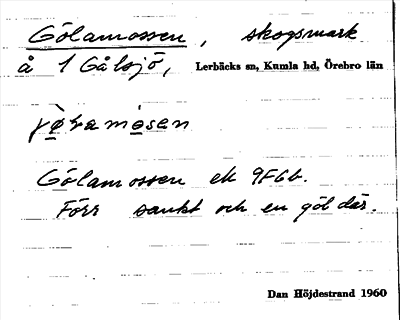 Gölamossen, skogsmark
å 1 Gålsjö, Lerbäcks sn, Kumla hd, Örebro län
Gölamossen ek 9F6b.
Förr sankt och en göl där.
Dan Höjdestrand 1960